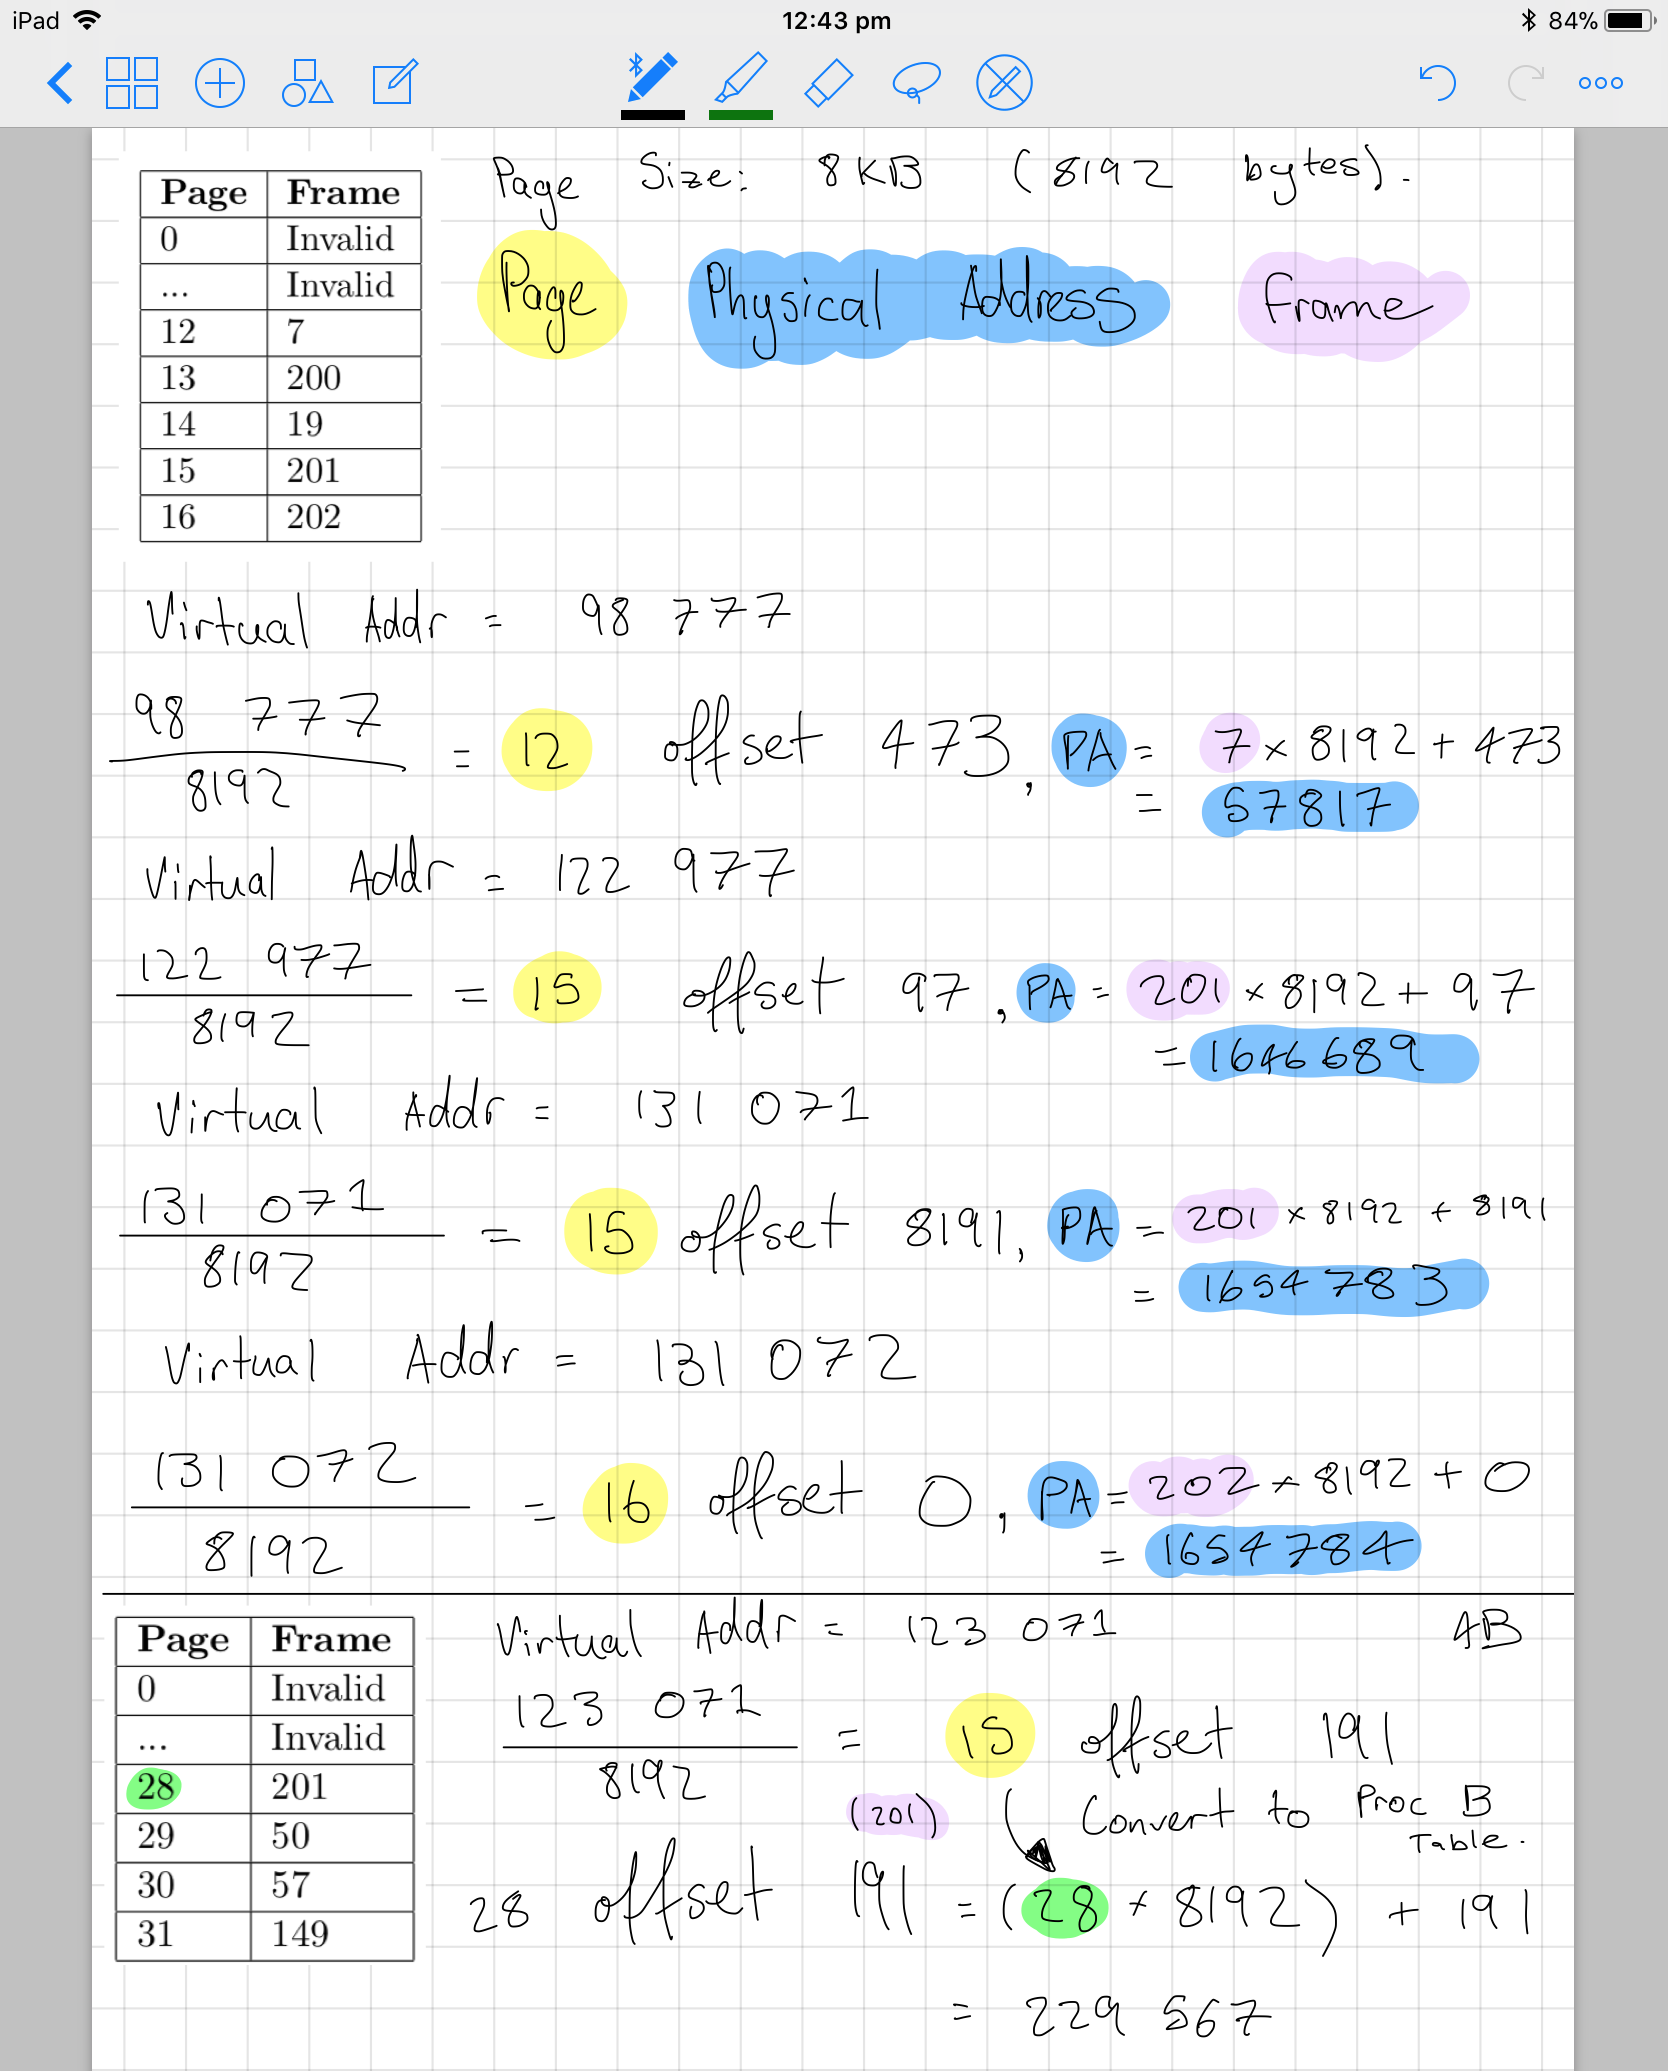 iPad 12:43 pm 84%
Page Frame
0 Invalid
... Invalid
12 7
13 200
14 19
15 201
16 202
Page Size: 8 KB (8192 bytes).
Page Physical Address Frame
Virtual Addr = 98 777
98 777
8192
= 12 offset 473, PA = 7 × 8192 + 473
= 57817
Virtual Addr = 122 977
122 977
8192
= 15 offset 97, PA = 201 × 8192 + 97
= 1646689
Virtual Addr = 131 071
131 071
8192
= 15 offset 8191, PA = 201 × 8192 + 8191
= 1654783
Virtual Addr = 131 072
131 072
8192
= 16 offset 0, PA = 202 × 8192 + 0
= 1654784
Page Frame
0 Invalid
... Invalid
28 201
29 50
30 57
31 149
Virtual Addr = 123 071 AB
123 071
8192
= 15 offset 191
(201) Convert to Proc B Table.
28 offset 191 = (28 × 8192) + 191
= 229 567